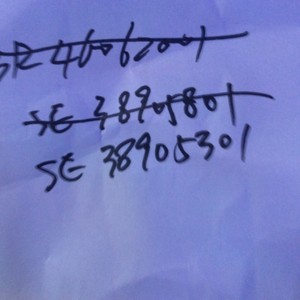 SR 46062001
SE 38905801
SE 38905301